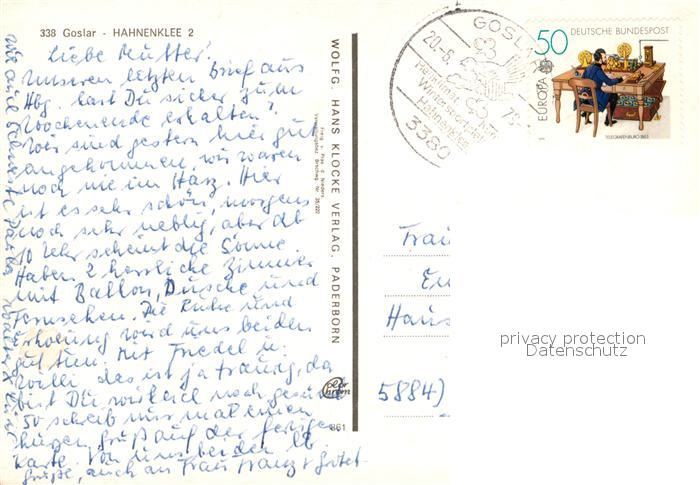 338 Goslar - HAHNENKLEE 2
Liebe Mutter!
Unseren letzten Brief aus
Hbg. hast Du sicher zum
Wochenende erhalten?
Wir sind gestern hier gut
angekommen, wir waren
noch nie im Harz. Hier
ist es sehr schön, morgens
noch sehr neblig, aber ab
10 Uhr scheint die Sonne.
Haben 2 herrliche Zimmer
mit Balkon, Dusche und
Fernsehen. Die Ruhe und
Erholung wird uns beiden
gut tun. Mit Friedel u.
Willi das ist ja traurig, da
bist Du wirklich noch gesund
So schreib uns mal einen
Gruß auf der
Karte. Von uns beiden
Grüße, auch an Frau Franz
WOLFG. HANS KLOCKE VERLAG, PADERBORN
861
GOSLAR
20.-6.
79-
Heilklima
Wintersportplatz
Hahnenklee
3380
50 DEUTSCHE BUNDESPOST
EUROPA
TELEGRAFENBÜRO 1863
Frau
Haus
5884)
privacy protection
Datenschutz